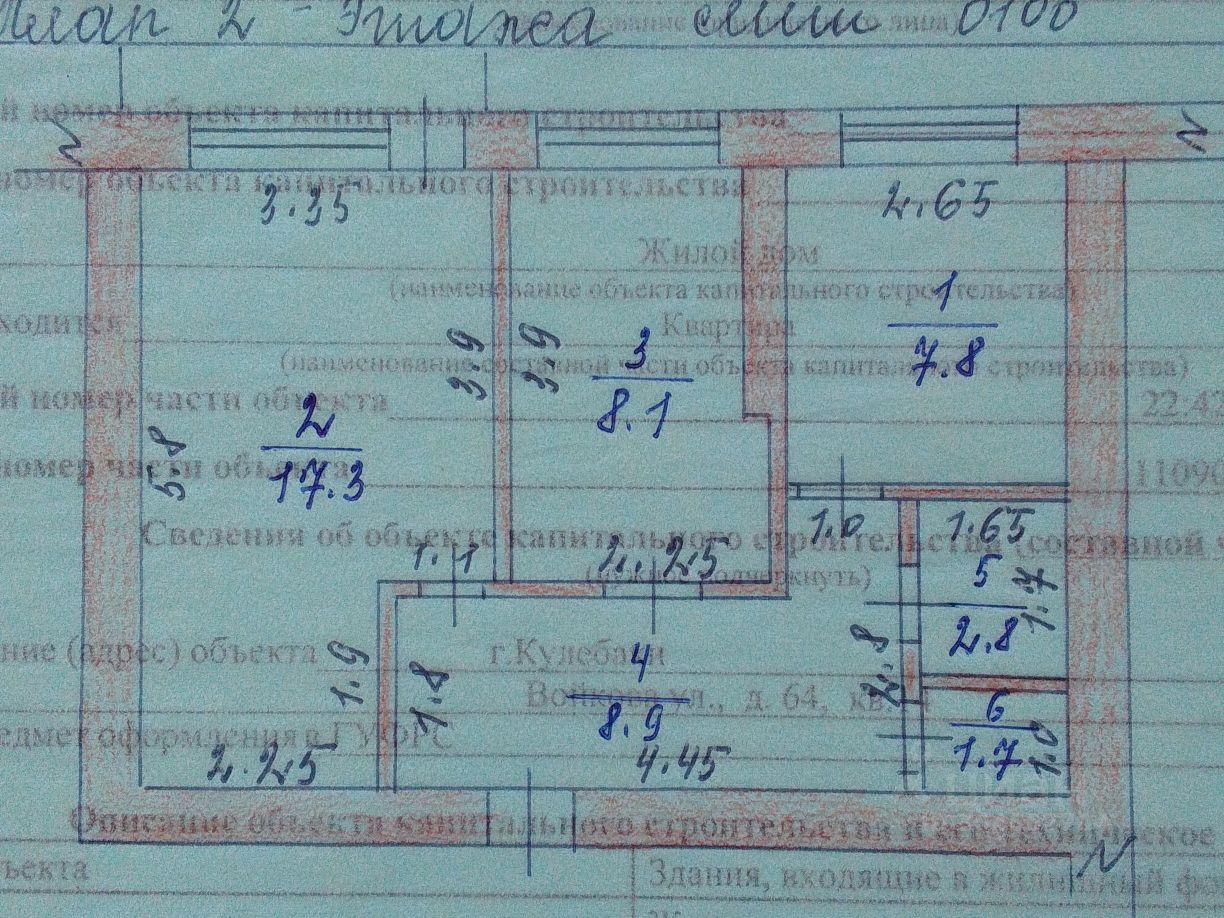 План 2 - Этажа
й номер объекта капитального строительства
номер объекта капитального строительства
3.35
2.65
Жилой дом
(наименование объекта капитального строительства)
1
7.8
ходится
Квартира
(наименование составной части объекта капитального строительства)
3.9
3.9
3
8.1
й номер части объекта
номер части объекта
5.8
2
17.3
1.0
1.65
Сведения об объекте капитального строительства (составной
1.1
2.25
(нужное подчеркнуть)
5
2.8
1.7
ние (адрес) объекта
г.Кулебаки
1.9
1.8
4
8.9
2.8
ул., д. 64, кв
6
1.7
1.0
едмет оформления в ГУФРС
2.25
4.45
Описание объекта капитального строительства и его техническое
ъекта
Здания, входящие в жилищный фо